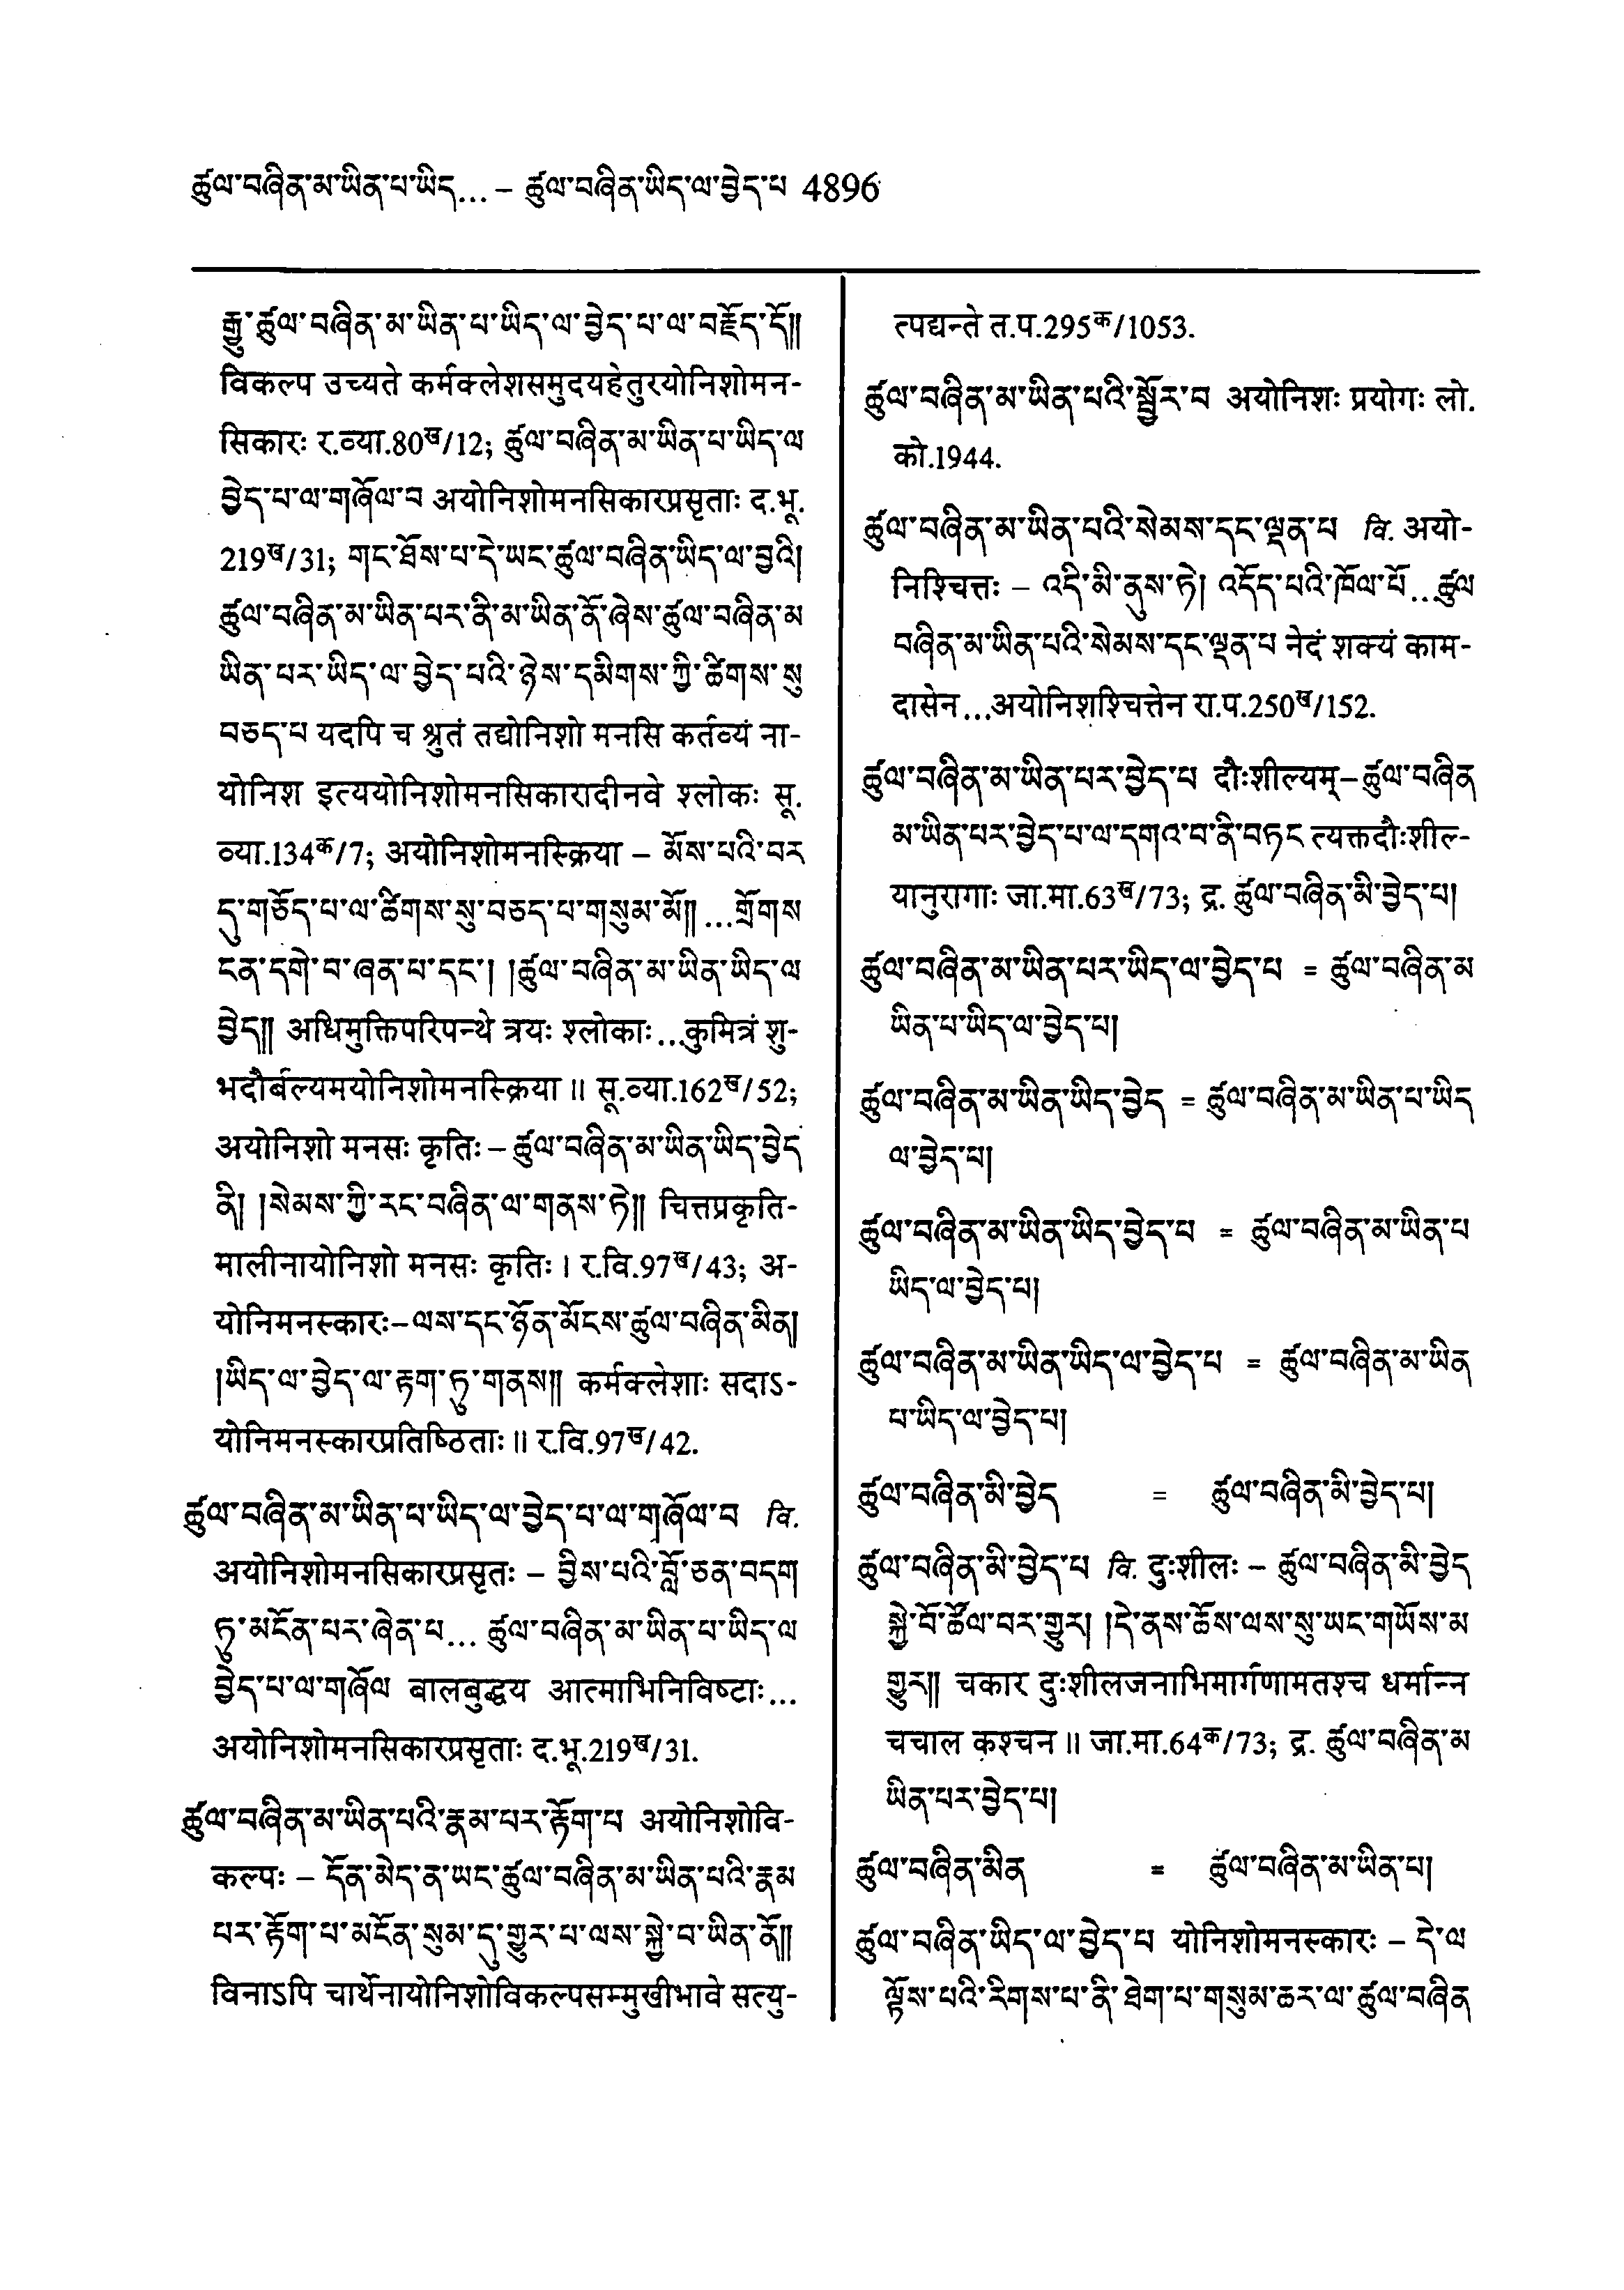 ཚུལ་བཞིན་མ་ཡིན་པ་ཡིད... – ཚུལ་བཞིན་ཡིད་ལ་བྱེད་པ 4896
རྒྱུ་ཚུལ་བཞིན་མ་ཡིན་པ་ཡིད་ལ་བྱེད་པ་ལ་བརྗོད་དོ༎
विकल्प उच्यते कर्मक्लेशसमुदयहेतुरयोनिशोमन-
सिकारः र.व्या.80ख/12; ཚུལ་བཞིན་མ་ཡིན་པ་ཡིད་ལ
བྱེད་པ་ལ་གཞོལ་བ अयोनिशोमनसिकारप्रसृताः द.भू.
219ख/31; གང་ཐོས་པ་དེ་ཡང་ཚུལ་བཞིན་ཡིད་ལ་བྱའི།
ཚུལ་བཞིན་མ་ཡིན་པར་ནི་མ་ཡིན་ནོ་ཞེས་ཚུལ་བཞིན་མ
ཡིན་པར་ཡིད་ལ་བྱེད་པའི་ཉེས་དམིགས་ཀྱི་ཚིགས་སུ
བཅད་པ यदपि च श्रुतं तद्योनिशो मनसि कर्तव्यं ना-
योनिश इत्ययोनिशोमनसिकारादीनवे श्लोकः सू.
व्या.134क/7; अयोनिशोमनस्क्रिया – མོས་པའི་བར
དུ་གཅོད་པ་ལ་ཚིགས་སུ་བཅད་པ་གསུམ་མོ༎ ...གྲོགས
ངན་དགེ་བ་ཞན་པ་དང་། །ཚུལ་བཞིན་མ་ཡིན་ཡིད་ལ
བྱེད༎ अधिमुक्तिपरिपन्थे त्रयः श्लोकाः...कुमित्रं शु-
भदौर्बल्यमयोनिशोमनस्क्रिया ॥ सू.व्या.162ख/52;
अयोनिशो मनसः कृतिः – ཚུལ་བཞིན་མ་ཡིན་ཡིད་བྱེད
ནི། །སེམས་ཀྱི་རང་བཞིན་ལ་གནས་ཏེ༎ चित्तप्रकृति-
मालीनायोनिशो मनसः कृतिः । र.वि.97ख/43; अ-
योनिमनस्कारः–ལས་དང་ཉོན་མོངས་ཚུལ་བཞིན་མིན།
།ཡིད་ལ་བྱེད་ལ་རྟག་ཏུ་གནས༎ कर्मक्लेशाः सदाऽ-
योनिमनस्कारप्रतिष्ठिताः ॥ र.वि.97ख/42.
ཚུལ་བཞིན་མ་ཡིན་པ་ཡིད་ལ་བྱེད་པ་ལ་གཞོལ་བ वि.
अयोनिशोमनसिकारप्रसृतः – བྱིས་པའི་བློ་ཅན་བདག
ཏུ་མངོན་པར་ཞེན་པ... ཚུལ་བཞིན་མ་ཡིན་པ་ཡིད་ལ
བྱེད་པ་ལ་གཞོལ बालबुद्धय आत्माभिनिविष्टाः...
अयोनिशोमनसिकारप्रसृताः द.भू.219ख/31.
ཚུལ་བཞིན་མ་ཡིན་པའི་རྣམ་པར་རྟོག་པ अयोनिशोवि-
कल्पः – དོན་མེད་ན་ཡང་ཚུལ་བཞིན་མ་ཡིན་པའི་རྣམ
པར་རྟོག་པ་མངོན་སུམ་དུ་གྱུར་པ་ལས་སྐྱེ་བ་ཡིན་ནོ༎
विनाऽपि चार्थेनायोनिशोविकल्पसम्मुखीभावे सत्यु-
त्पद्यन्ते त.प.295क/1053.
ཚུལ་བཞིན་མ་ཡིན་པའི་སྦྱོར་བ अयोनिशः प्रयोगः लो.
को.1944.
ཚུལ་བཞིན་མ་ཡིན་པའི་སེམས་དང་ལྡན་པ वि. अयो-
निश्चित्तः – འདི་མི་ནུས་ཏེ། འདོད་པའི་ཁོལ་པོ...ཚུལ
བཞིན་མ་ཡིན་པའི་སེམས་དང་ལྡན་པ नेदं शक्यं काम-
दासेन...अयोनिशश्चित्तेन रा.प.250ख/152.
ཚུལ་བཞིན་མ་ཡིན་པར་བྱེད་པ दौःशील्यम्–ཚུལ་བཞིན
མ་ཡིན་པར་བྱེད་པ་ལ་དགའ་བ་ནི་བཏང त्यक्तदौःशील्-
यानुरागाः जा.मा.63ख/73; द्र. ཚུལ་བཞིན་མི་བྱེད་པ།
ཚུལ་བཞིན་མ་ཡིན་པར་ཡིད་ལ་བྱེད་པ = ཚུལ་བཞིན་མ
ཡིན་པ་ཡིད་ལ་བྱེད་པ།
ཚུལ་བཞིན་མ་ཡིན་ཡིད་བྱེད = ཚུལ་བཞིན་མ་ཡིན་པ་ཡིད
ལ་བྱེད་པ།
ཚུལ་བཞིན་མ་ཡིན་ཡིད་བྱེད་པ = ཚུལ་བཞིན་མ་ཡིན་པ
ཡིད་ལ་བྱེད་པ།
ཚུལ་བཞིན་མ་ཡིན་ཡིད་ལ་བྱེད་པ = ཚུལ་བཞིན་མ་ཡིན
པ་ཡིད་ལ་བྱེད་པ།
ཚུལ་བཞིན་མི་བྱེད = ཚུལ་བཞིན་མི་བྱེད་པ།
ཚུལ་བཞིན་མི་བྱེད་པ वि. दुःशीलः – ཚུལ་བཞིན་མི་བྱེད
སྐྱེ་བོ་ཚོལ་བར་གྱུར། །དེ་ནས་ཆོས་ལས་སུ་ཡང་གཡོས་མ
གྱུར༎ चकार दुःशीलजनाभिमार्गणामतश्च धर्मान्न
चचाल कश्चन ॥ जा.मा.64क/73; द्र. ཚུལ་བཞིན་མ
ཡིན་པར་བྱེད་པ།
ཚུལ་བཞིན་མིན = ཚུལ་བཞིན་མ་ཡིན་པ།
ཚུལ་བཞིན་ཡིད་ལ་བྱེད་པ योनिशोमनस्कारः – དེ་ལ
ལྟོས་པའི་རིགས་པ་ནི་ཐེག་པ་གསུམ་ཆར་ལ་ཚུལ་བཞིན